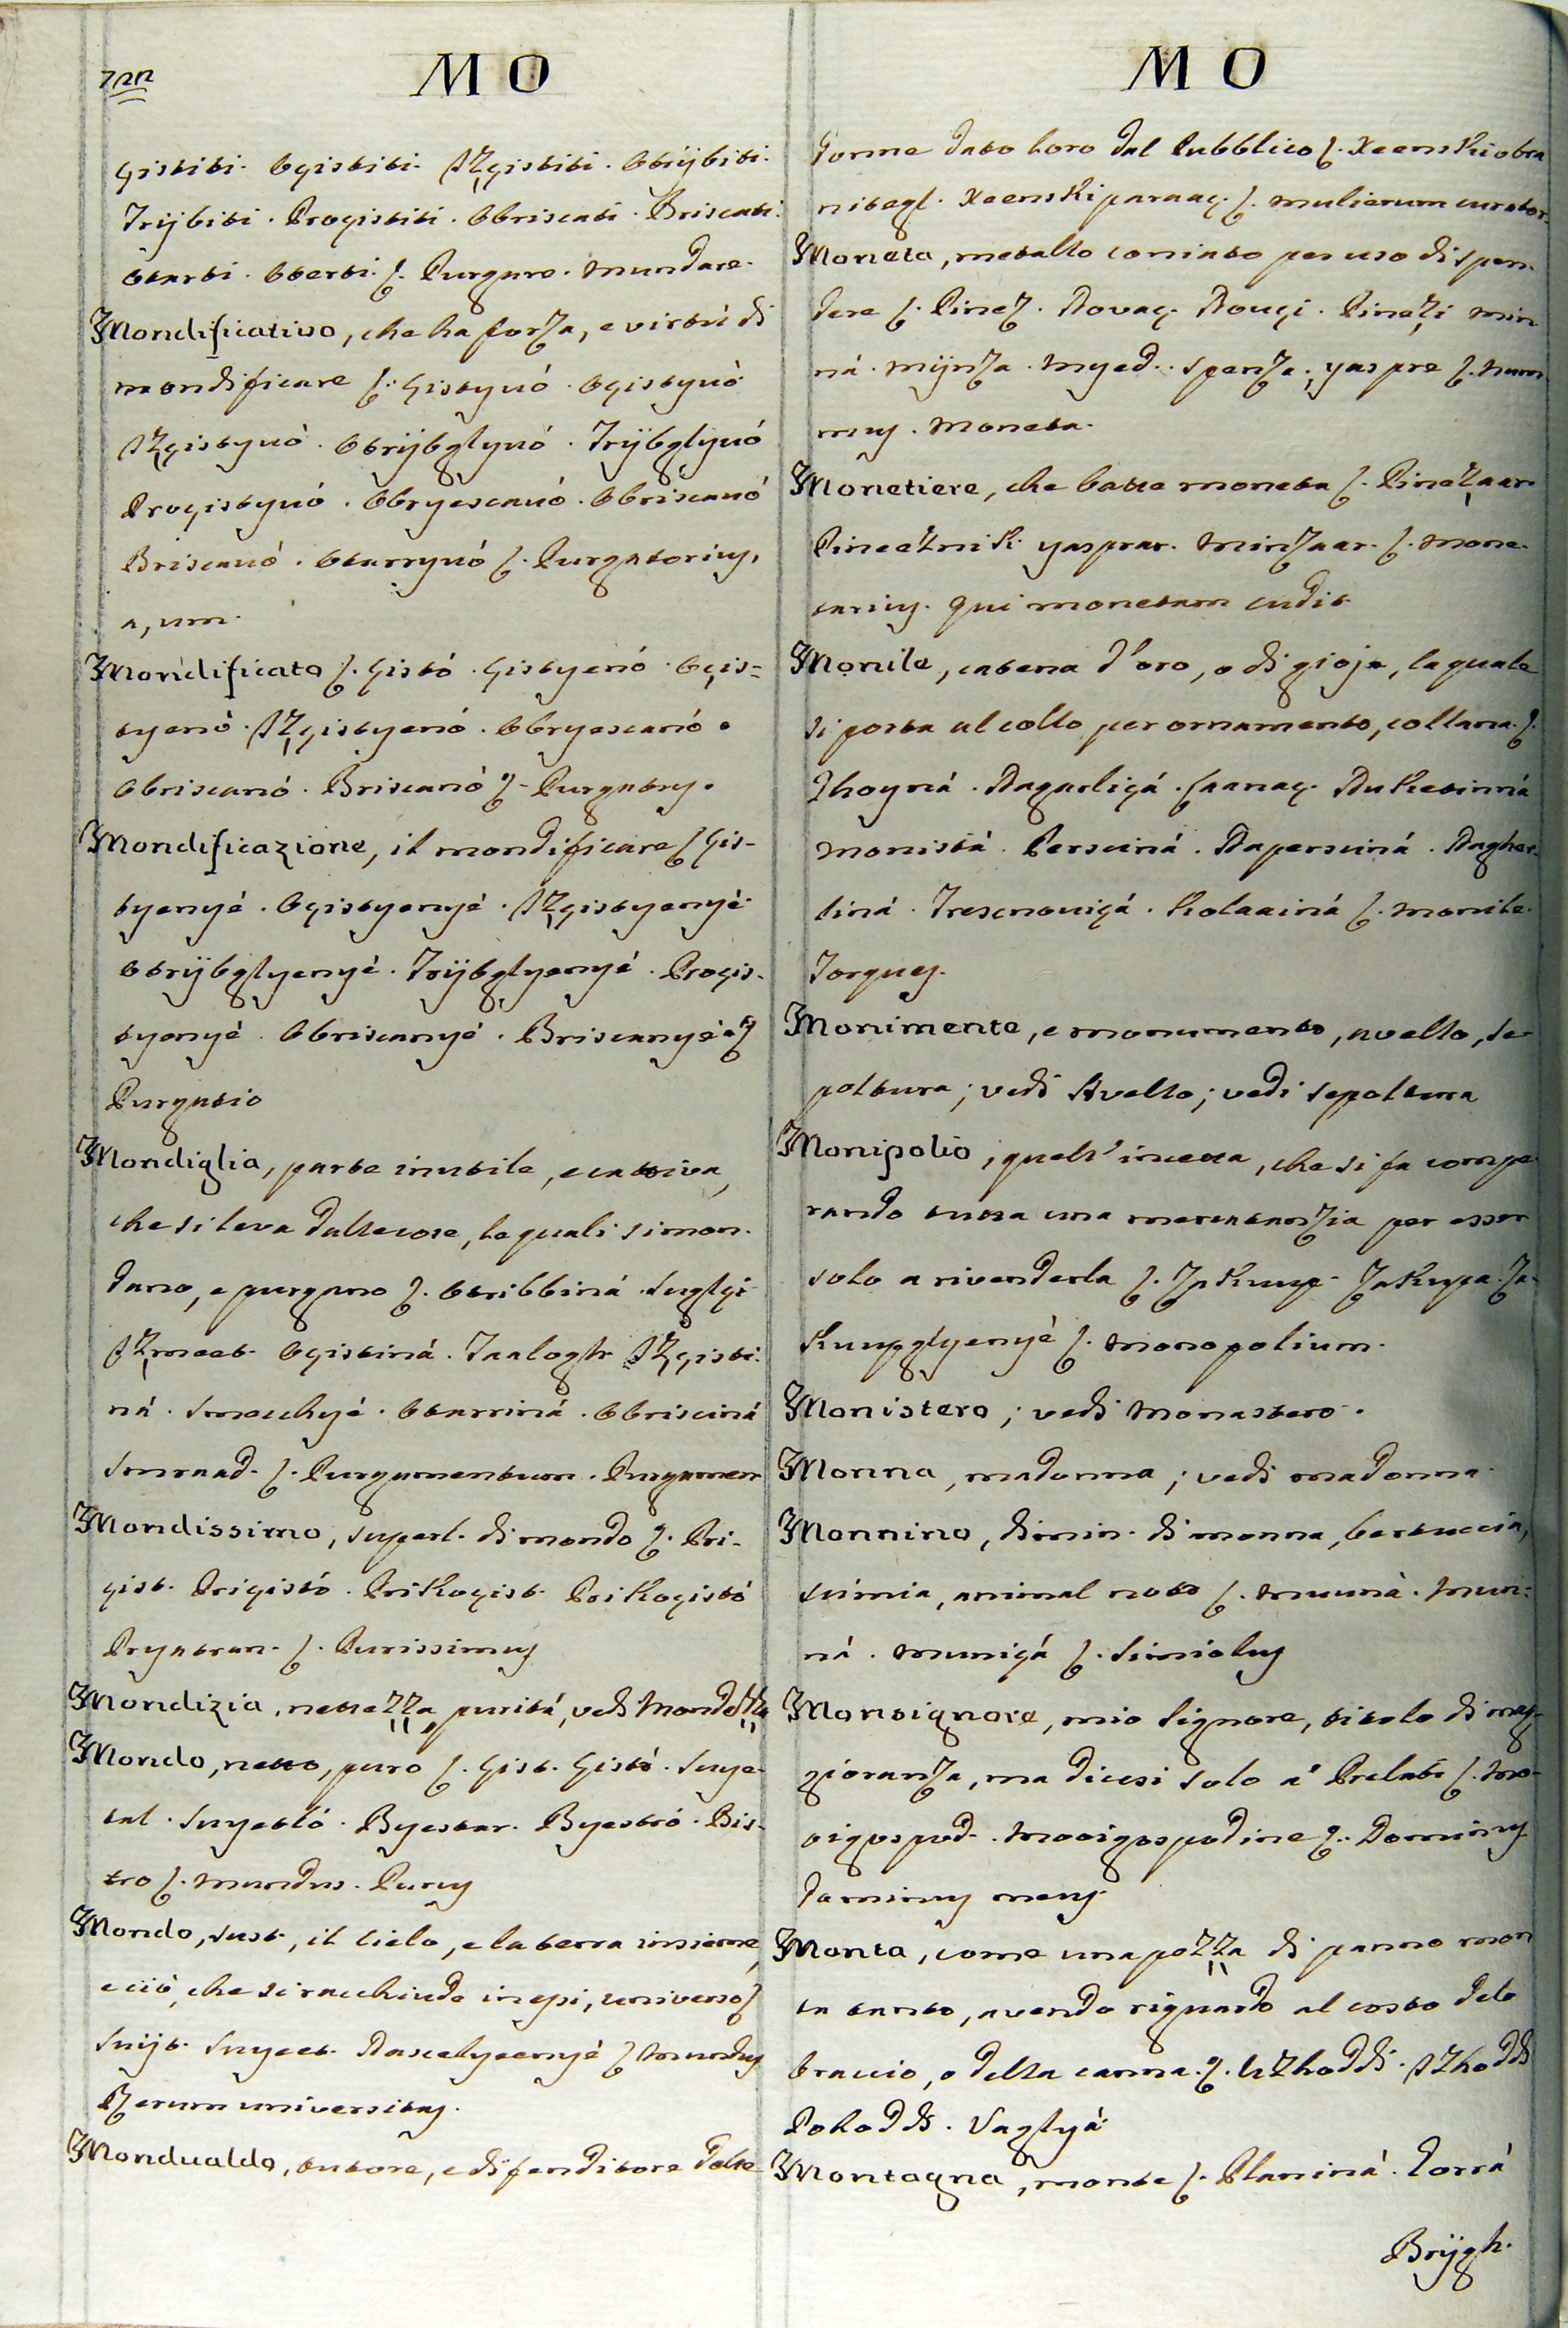 722
MO
çistiti. Oçistiti. Izçistiti. Otrijbiti.
Trijbiti. Proçistiti. Obriscati. Briscati.
Otarti. Oterti. ſ. Purgare. Mundare.
Mondificativo, che ha forza, e virtù di
mondificare ſ. çistyuó. Oçistyuó
Izçistyuó. Otrijbglyuó. Trijbglyuó
Proçistyuó. Obryescauó. Obriscauó
Briscauó. Otarryuó ſ. Purgatorius,
a, um.
Mondificato ſ. çistó. çistyenó. Oçis-
tyenó. Izçistyenó. Obryescanó.
Obriscanó. Briscanó ſ. Purgatus.
Mondificazione, il mondificare ſ çis-
tyenyé. Oçistyenyé. Izçistyenyé
Otrijbglyenyé. Trijbglyenyé. Proçis-
tyenyé. Obriscanyé. Briscanyé. ſ
Purgatio
Mondiglia, parte inutile, e cattiva,
che si leva dalle cose, le quali si mon-
dano, e purgano ſ. Otribbiná. Suglçi
Izmeet. Oçistiná. Taalogh. Izçisti-
ná. Smecchyé. Otarriná. Obrisciná
Smraad. ſ. Purgamentum. Purgamen
Mondissimo, superl. di mondo ſ. Pri-
çist. Priçistó. Prikoçist. Prikoçistó
Pryatran. ſ. Purissimus
Mondizia, nettezza, purità, vedi Mondezza
Mondo, netto, puro ſ. çist. çistó. Suye-
tal. Suyetló. Byestar. Byestró. Bis-
tro ſ. Mundus. Purus
Mondo, sust., il cielo, e la terra insieme,
e ciò, che si racchiude in essi, universo ſ
Suijt. Suyeet. Dascelyeenyé ſ Mundus
Rerum universitas.
Mondualdo, tutore, e difenditore delle
MO
donne dato loro dal Pubblico ſ. Xeenski obra
nitegl. Xeenski paraaç. ſ. mulierum curator.
Moneta, metallo coniato per uso di spen-
dere ſ. Pinez. Novaç. Nouçi. Pinezi min
ná. Mijnza. Myed. Spenza. yaspre ſ. Num
mus. Moneta.
Monetiere, che batte moneta ſ. Pinezaar.
Pineeznik. yasprar. Minzaar. ſ. Mone-
tarius. Qui monetam cudit
Monile, catena d'oro, o di gioje, la quale
si porta al collo per ornamento, collana. ſ.
Ghoyná. Dagarliçá. Laanaç. Duketinná
Monistá. Persciná. Napersciná. Nagher-
liná. Trescnouiçá. Kolaainá ſ. Monile.
Torques.
Monimente, e monumento, avello, se-
poltura; vedi Avello; vedi sepoltura
Monipolio, quell'incetta, che si fa compe
rando tutta una mercatanzia per esser
solo a rivenderla ſ. Zakuup. Zakupa. Za-
kuupglyenyé ſ. Monopolium.
Monistero; vedi Monastero.
Monna, madonna; vedi madonna.
Monnino, dimin. di monna, bertuccia,
scimia, animal noto ſ. Muuná. Muni-
ná. Muniçá ſ. Simiolus
Monsignore, mio Signore, titolo di mag-
gioranza, ma dicesi solo a' Prelati ſ. Mo-
oigospod. Mooigospodine ſ. Dominus
dominus meus.
Monta, come una pezza di panno mon
ta tanto, avendo riguardo al costo del
braccio, o della canna. ſ. Uzhoddi. Izhoddi
Pohoddi. Vaglyá
Montagna, monte ſ. Planiná. Gorrá
Brijgh.